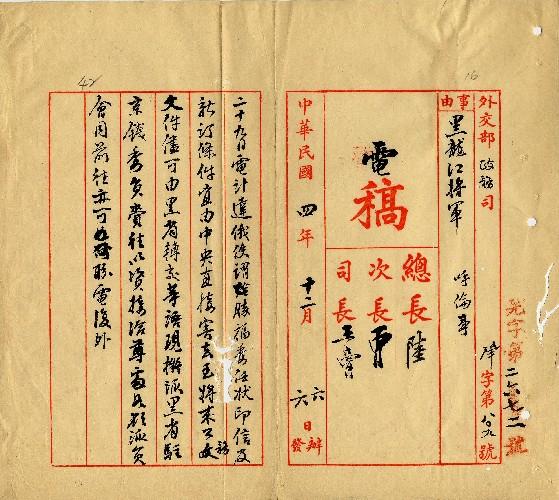 外交部 政務司
事由
黑龍江將軍
呼倫事
字第 八九 號
字第二六七二號
電稿
總長 陸
次長 曹
司長 王
中華民國 四年 十二月 六日辦
六日發
二十九日電計達俄使謂勝福委任狀印信及
新訂條件宜由中央直接寄去至將來公文
文件儘可由黑省轉交等語現擬派黑省駐
京錢委員賫往以資接洽尊處如欲派員
會同前往亦可
電復外
16
42